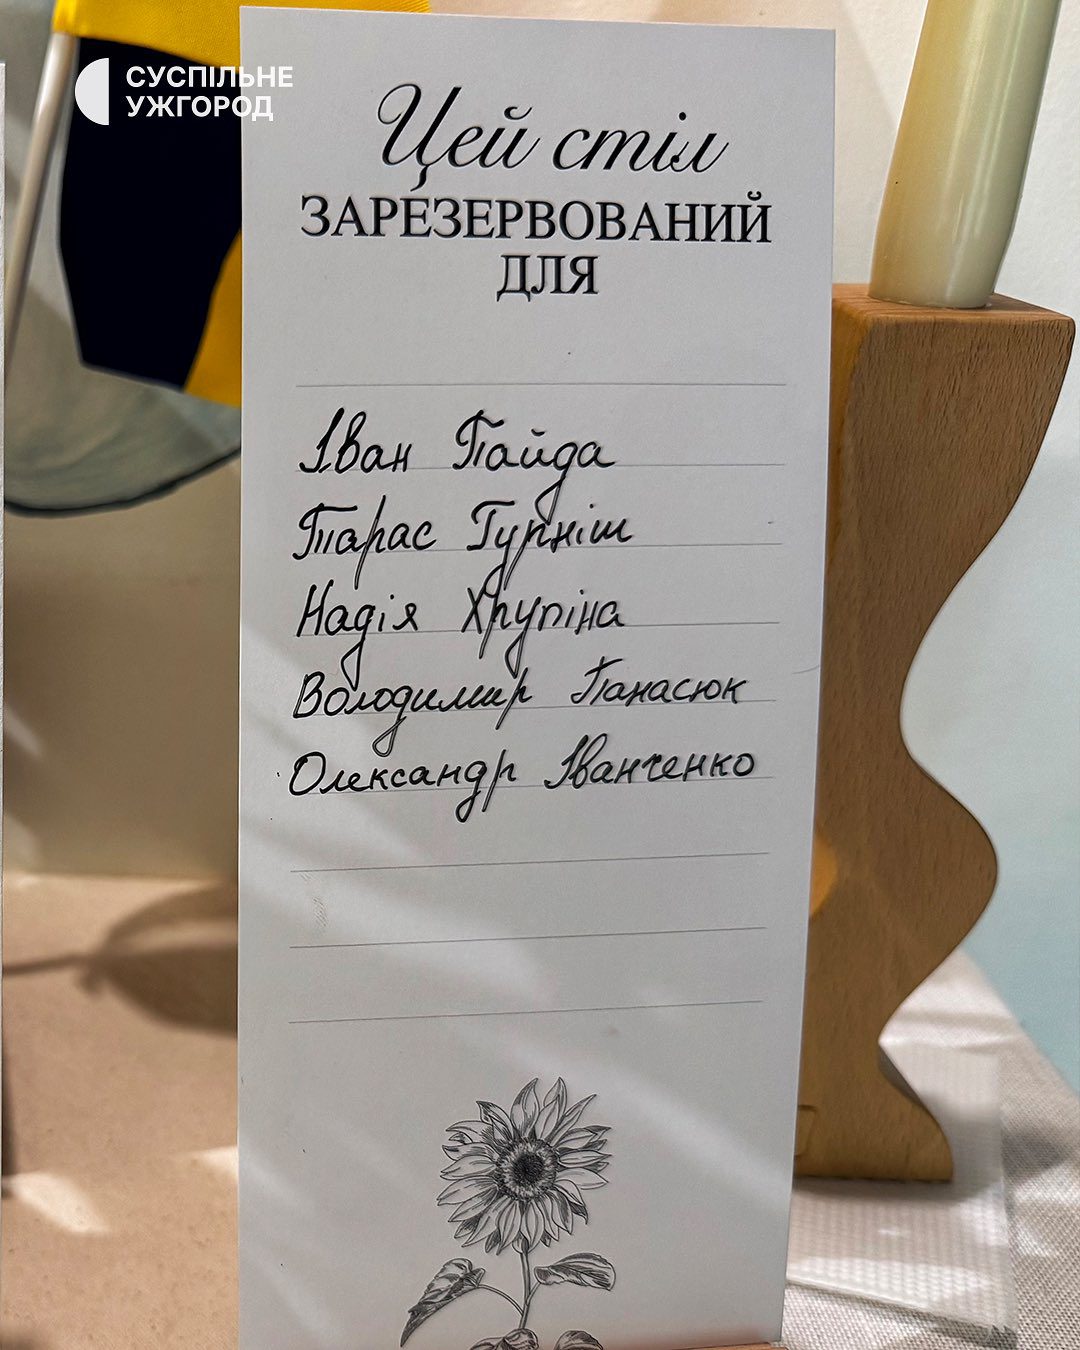 СУСПІЛЬНЕ
УЖГОРОД
Цей стіл
ЗАРЕЗЕРВОВАНИЙ
ДЛЯ
Іван Пайда
Тарас Гурніш
Надія Хрупіна
Володимир Панасюк
Олександр Іванченко